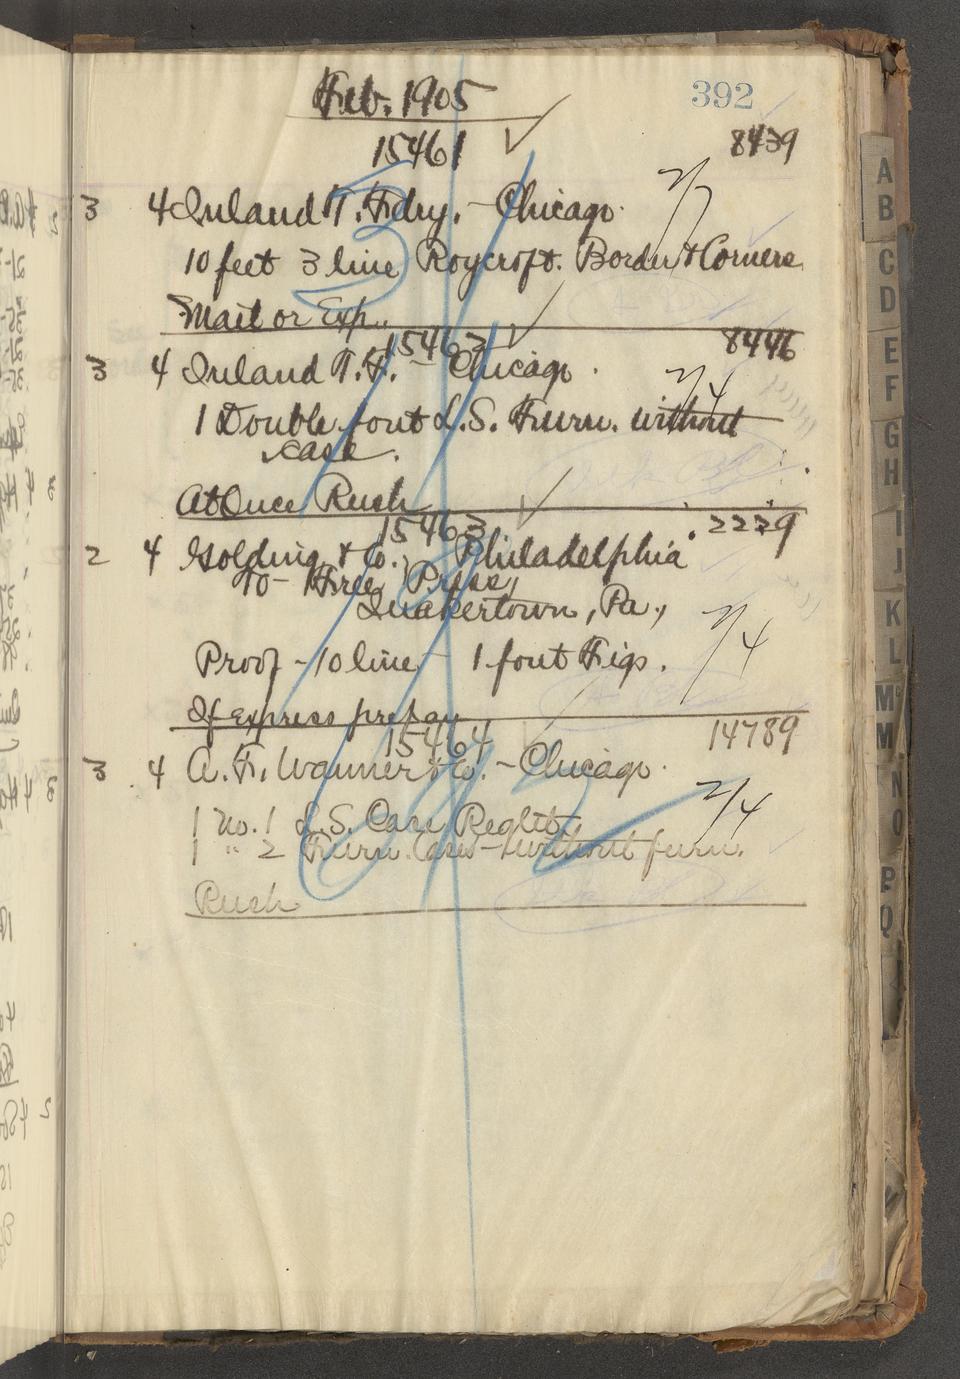 392
Feb. 1905
15461 8439
3 4 Inland T. Fdry. - Chicago. 2/7
10 feet 3 line Roycroft. Border & Corners
Mail or Exp..
15462 8446
3 4 Inland T. F. - Chicago. 2/4
1 Double font L.S. Furn. without
case.
At Once Rush
15463 2229
2 4 Golding & Co., Philadelphia
To - Free Press,
Quakertown, Pa.,
2/4
Proof - 10 line - 1 font Figs.
If express prepay
15464 14789
3 4 A. F. Wanner & Co. - Chicago.
2/4
1 No. 1 L.S. Case Reglet
1 " 2 Furn. Case - without furn.
Rush
A
B
C
D
E
F
G
H
I
J
K
L
M
M
N
O
P
Q